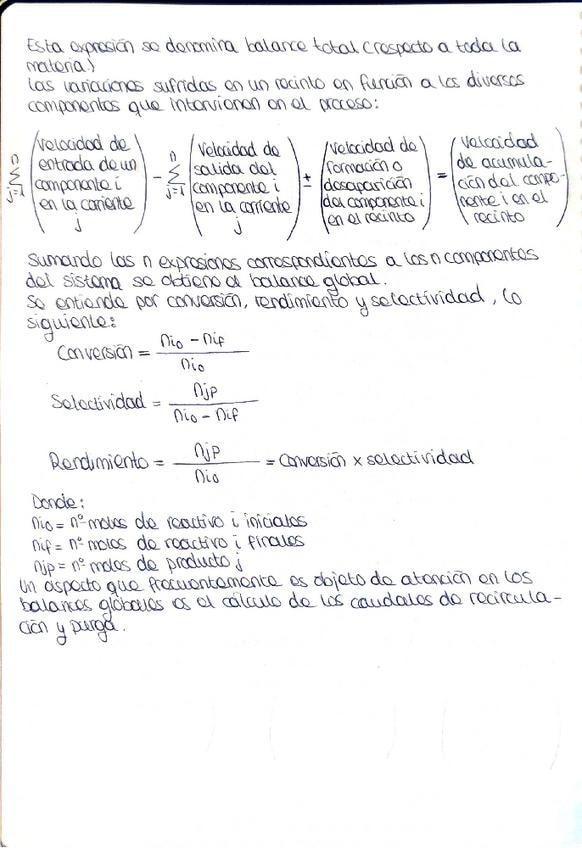 Esta expresión se denomina balance total (respecto a toda la
materia)
Las variaciones sufridas en un recinto en función a los diversos
componentes que intervienen en el proceso:
n∑j=1 (velocidad de entrada de un componente i en la corriente j) − n∑j=1 (velocidad de salida del componente i en la corriente j) ± (velocidad de formación o desaparición del componente i en el recinto) = (velocidad de acumula-ción del compo-nente i en el recinto)
Sumando las n expresiones correspondientes a los n componentes
del sistema se obtiene el balance global.
Se entiende por conversión, rendimiento y selectividad, lo
siguiente:
Conversión = (nio − nif) / nio
Selectividad = njp / (nio − nif)
Rendimiento = njp / nio = conversión x selectividad
Donde:
nio = nº moles de reactivo i iniciales
nif = nº moles de reactivo i finales
njp = nº moles de producto j
Un aspecto que frecuentemente es objeto de atención en los
balances globales es el cálculo de los caudales de recircula-
ción y purga.